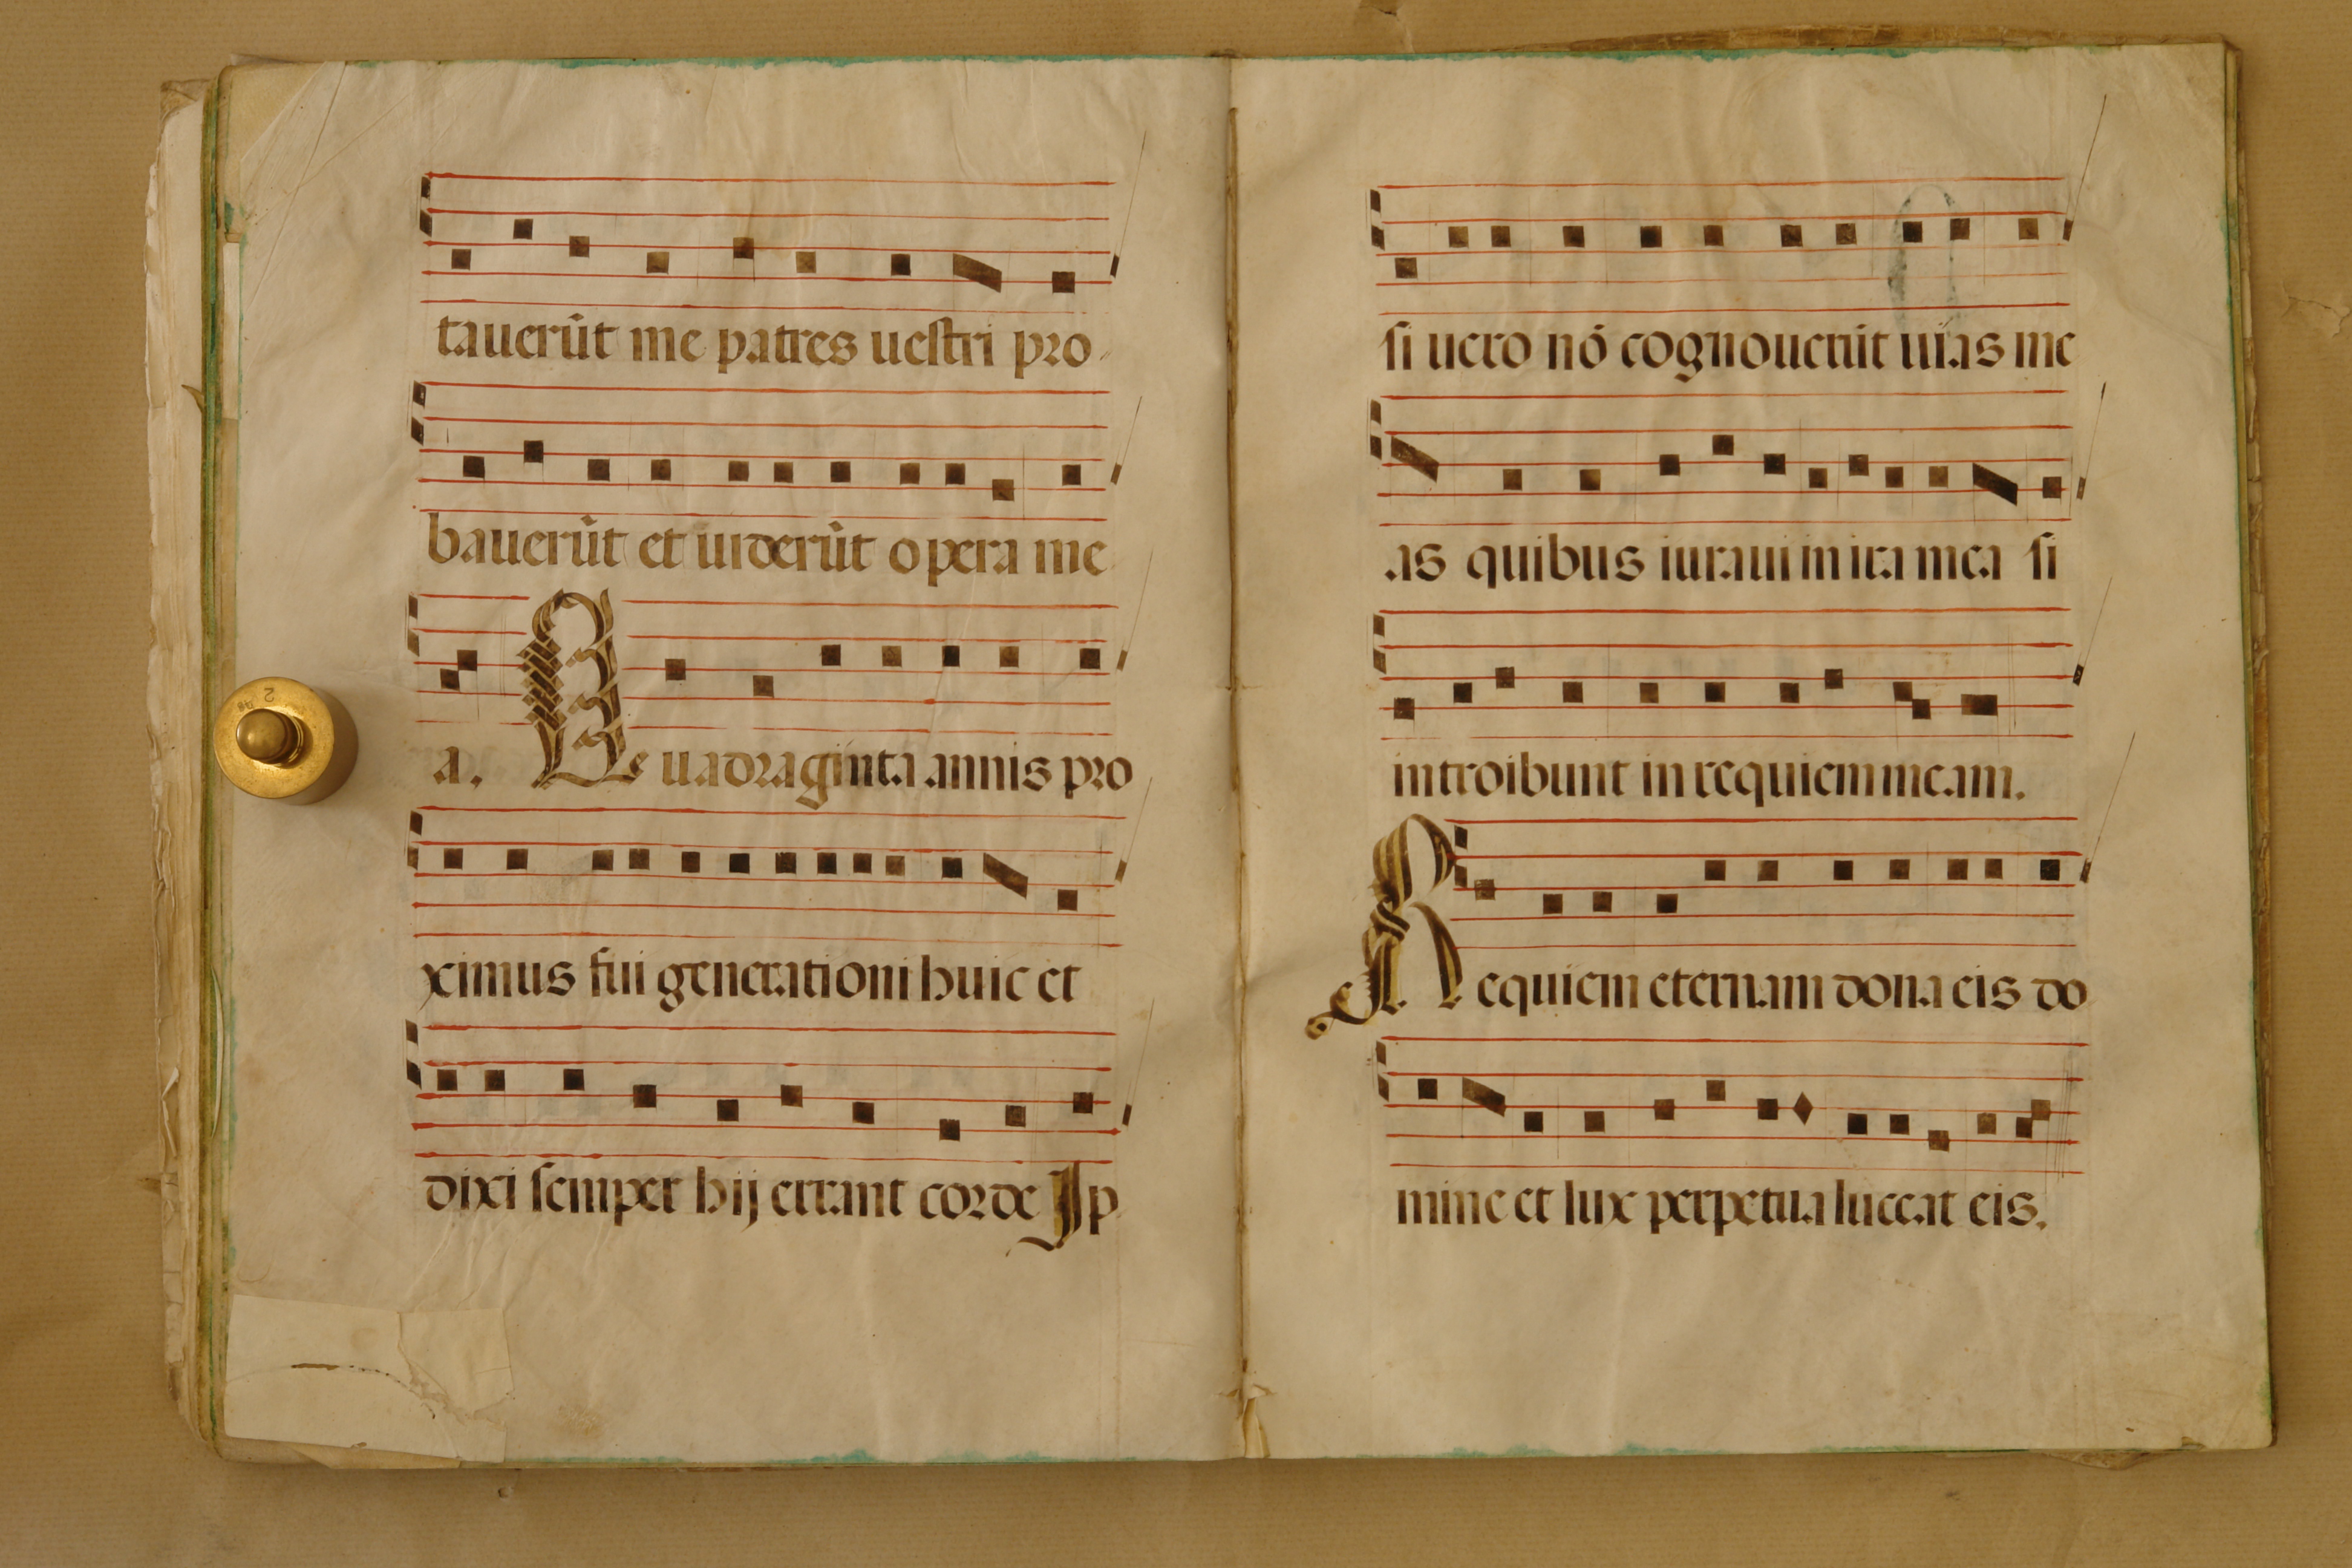 tauerūt me patres uestri pro-
bauerūt et uiderūt opera me
a. Quadraginta annis pro
ximus fui generationi huic et
dixi semper hij errant corde Ip
si uero nō cognouerūt uias me
as quibus iuraui in ira mea si
introibunt in requiem meam.
Requiem eternam dona eis do
mine et lux perpetua luceat eis.
2